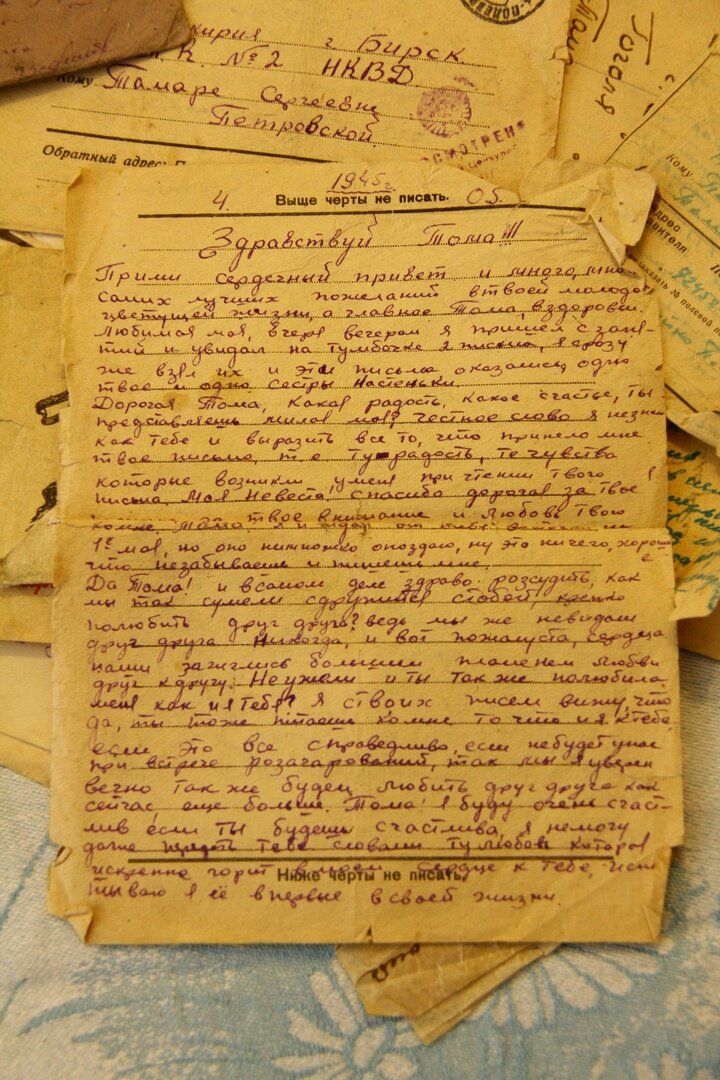 г. Бирск
№2 НКВД
Кому Тамаре Сергеевне
Петровской
Обратный адрес:
Гоголя
Кому
1945 г.
4. Выше черты не писать. 05.
Здравствуй Тома!!!
Прими сердечный привет и много, мно-
самих лучших пожеланий в твоей молодой
цветущей жизни, а главное Тома, в здоровьи.
Любимая моя, вчера вечером я пришел с заня-
тий и увидал на тумбочке 2 письма, я сразу
же взял их и эти письма оказались одно
твое и одно сестры Настеньки.
Дорогая Тома, какая радость, какое счастье, ты
представляешь милая моя? честное слово я незнаю
как тебе и выразить все то, что принело мне
твое письмо, т.е ту радость, те чувства
которые возникли у меня при чтении твого
письма. Моя Невеста! спасибо дорогая за твое
твое внимание и любовь твою
1е мая, но оно нимножко опоздаю, ну это ничего, хорошо
что незабываеш и пишеш мне.
Да Тома! и всамом деле здраво розсудить, как
мы так сумели сдружится стобой, крепко
полюбить друг друга? ведь мы же невидали
друг друга никогда, и вот пожалуста, сердца
наши зажглись большим пламенем любви
друг к другу. Неужели и ты так же полюбила
меня как и я тебя? Я ствоих писем вижу, что
да, ты тоже питаеш комне то что и я к тебе,
если это все справедливо, если небудет у нас
при встрече розачарований, так мы я уверен
вечно так же будем любить друг друга как
сейчас, еще больше. Тома! я буду очень счаст-
лив если ты будеш счастлива, я немогу
даже тебе словами ту любовь которая
искренно горит в моем сердце к тебе, испи
Ниже черты не писать.
тываю я её впервые в своей жизни.